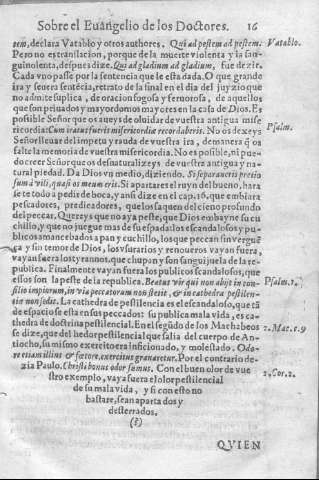 Sobre el Euangelio de los Doctores. 16
tem, declara Vatablo y otros authores, Qui ad pestem ad pestem. Vatablo.
Pero no es translacion, porque de la muerte violenta y la san-
guinolenta, despues dize. Qui ad gladium ad gladium, fue dezir.
Cada vno passe por la sentencia que le esta dada. O que grande
ira y seuera sentēcia, retrato de la final en el dia del juyzio que
no admite suplica, de oracion fogosa y feruorosa, de aquellos
que son priuados y mayordomos mayores en la casa de Dios. Es
possible Señor que os aueys de oluidar de vuestra antigua mise
ricordia: Cum iratus fueris misericordiæ recordaberis. No os dexeys Psalm.
Señor lleuar del impetu y rauda de vuestra ira, demanera q̃ os
falte la memoria de vuestra misericordia. No es possible, ni pue-
do creer Señor que os desnaturalizeys de vuestra antigua y na-
tural piedad. Da Dios vn medio, diziendo. Si separaueris pretio
sum à vili, quasi os meum eris. Si apartares el ruyn del bueno, hara
se te todo a pedir de boca, y ansi dize en el cap. 16. que embiara
pescadores, predicadores, que los saquen del cieno profundo
del peccar. Quereys que no aya peste, que Dios embayne su cu
chillo, y que no juegue mas de su espada los escandalosos y pu-
blicos amancebados a pan y cuchillo, los que peccan sin verguē
ça y sin temor de Dios, los vsurarios y renoueros vayan fuera,
vayan fuera los tyrannos, que chupan y son sanguijuela de la re-
publica. Finalmente vayan fuera los publicos escandalosos, que
essos son la peste de la republica. Beatus vir qui non abijt in con- Psalm. 1.
silio impiorum, in via peccatorum non stetit, & in cathedra pestilen-
tiæ non sedit. La cathedra de pestilencia es el escandaloso, que esta
de espacio se esta en sus peccados: su publica mala vida, es ca-
thedra de doctrina pestilencial. En el segūdo de los Machabeos
se dize, que del hedor pestilencial que salia del cuerpo de An- 2. Mac. c. 9
tiocho, su mismo exercito era inficionado, y molestado. Odo-
re etiam illius & fœtore exercitus grauaretur. Por el contrario de-
zia Paulo. Christi bonus odor sumus. Con el buen olor de vue 2. Cor. 2.
stro exemplo, vaya fuera el olor pestilencial
de su mala vida, y si con esto no
bastare, sean apartados y
desterrados.
(?)
QVIEN